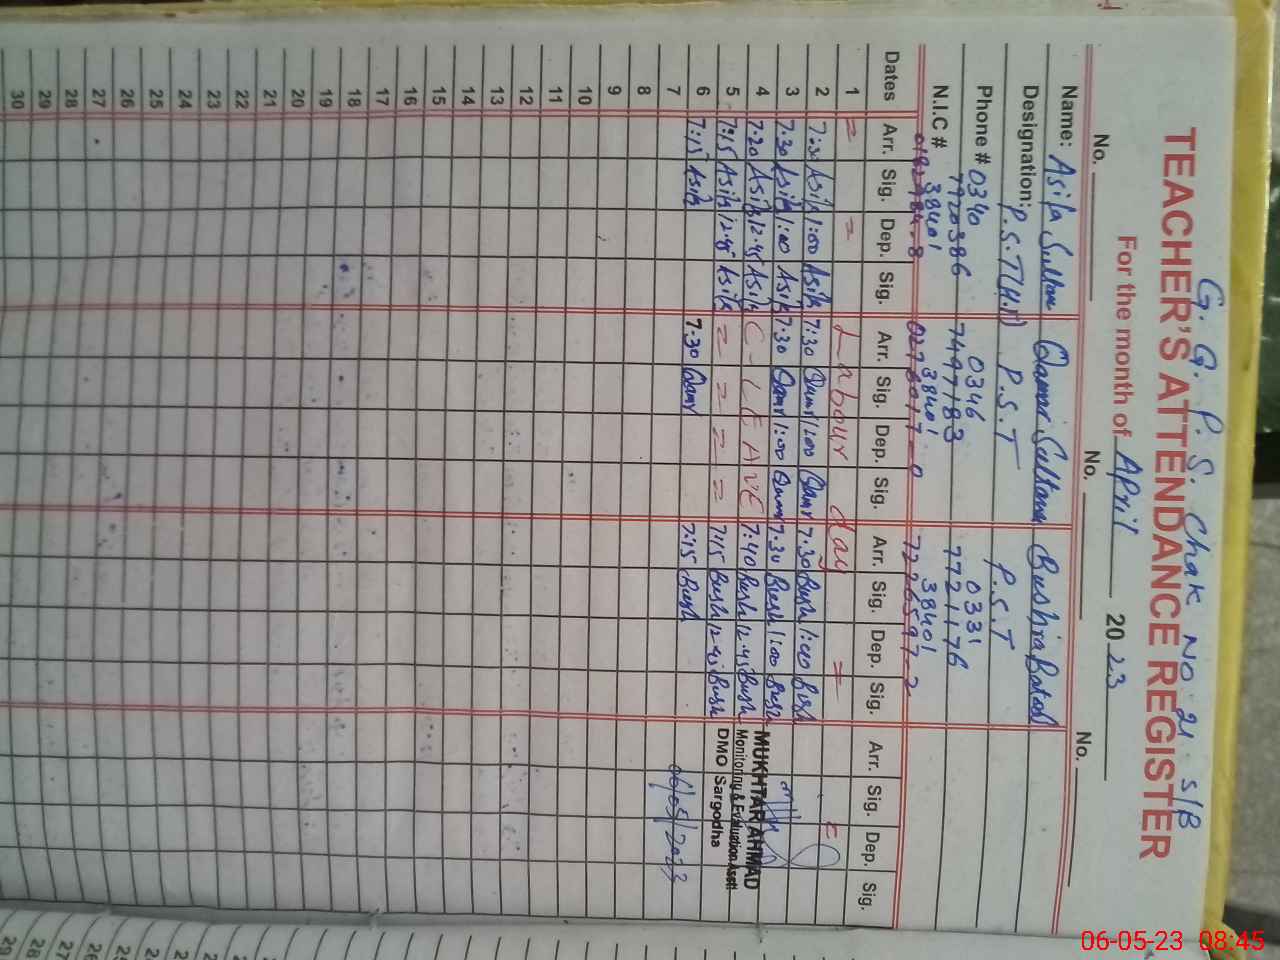 G. G. P. S. Chak No 21 S/B
TEACHER'S ATTENDANCE REGISTER
For the month of April 2023
No. No. No.
Name: Asifa Sultana Qamar Sultana Bushra Batool
Designation: P.S.T(H.T) P.S.T P.S.T
Phone # 0340 0346 0331
7920386 7497183 7721176
N.I.C # 38401 38401 38401
Dates Arr. Sig. Dep. Sig. Arr. Sig. Dep. Sig. Arr. Sig. Dep. Sig. Arr. Sig. Dep. Sig.
1 = = Labour day = =
2 7:30 Asifa 1:00 Asifa 7:30 Qamr 1:00 Qamr 7:30 Bush 1:00 Bush
3 7:30 Asifa 1:00 Asifa 7:30 Qamr 1:00 Qamr 7:30 Bush 1:00 Bush
4 7:20 Asifa 12:45 Asifa C - LEAVE 7:40 Bush 12:45 Bush MUKHTAR AHMAD
Monitoring & Evaluation Asstt
5 7:15 Asifa 12:45 Asifa = = = = 7:15 Bush 12:45 Bush DMO Sargodha
6 7:15 Asifa 7:30 Qamr 7:15 Bush
7 06/05/2023
8
9
10
11
12
13
14
15
16
17
18
19
20
21
22
23
24
25
26
27
28
29
30
06-05-23 08:45